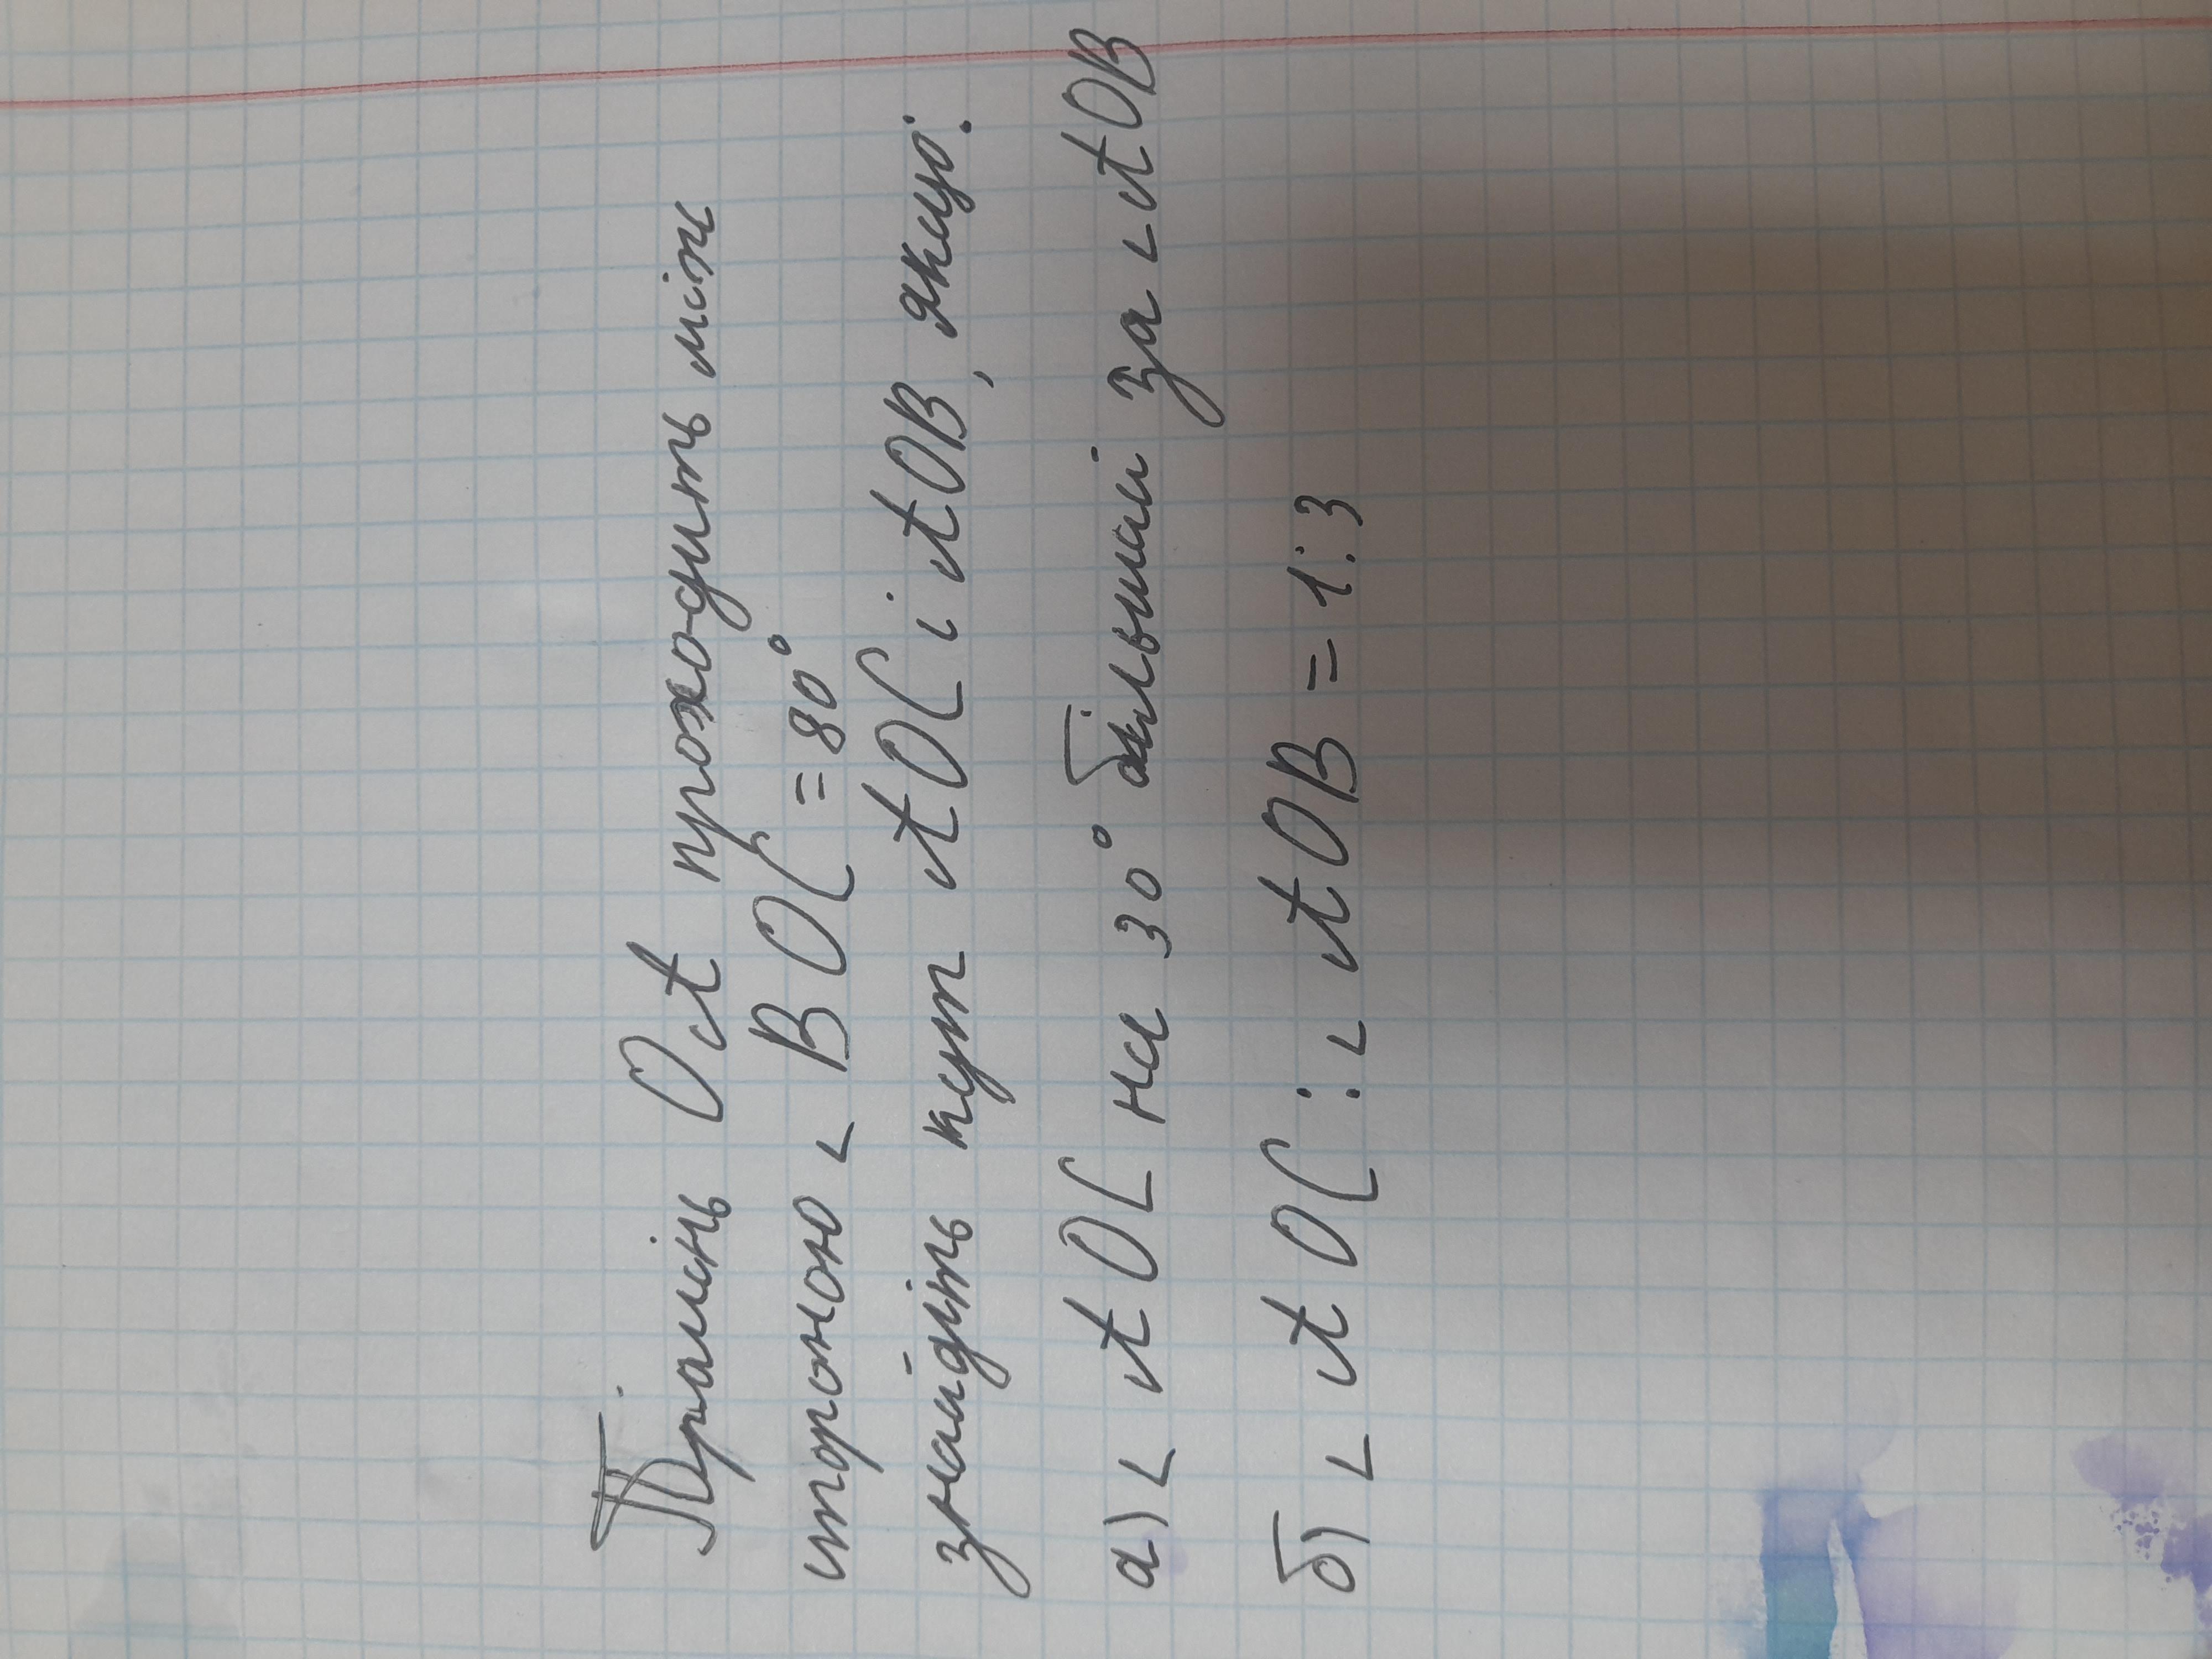 Промінь OA проходить між
стороною ∟ BOC = 80°
знайдіть кут AOC і AOB, якщо:
а) ∟ AOC на 30° більший за ∟ AOB
б) ∟ AOC : ∟ AOB = 1:3